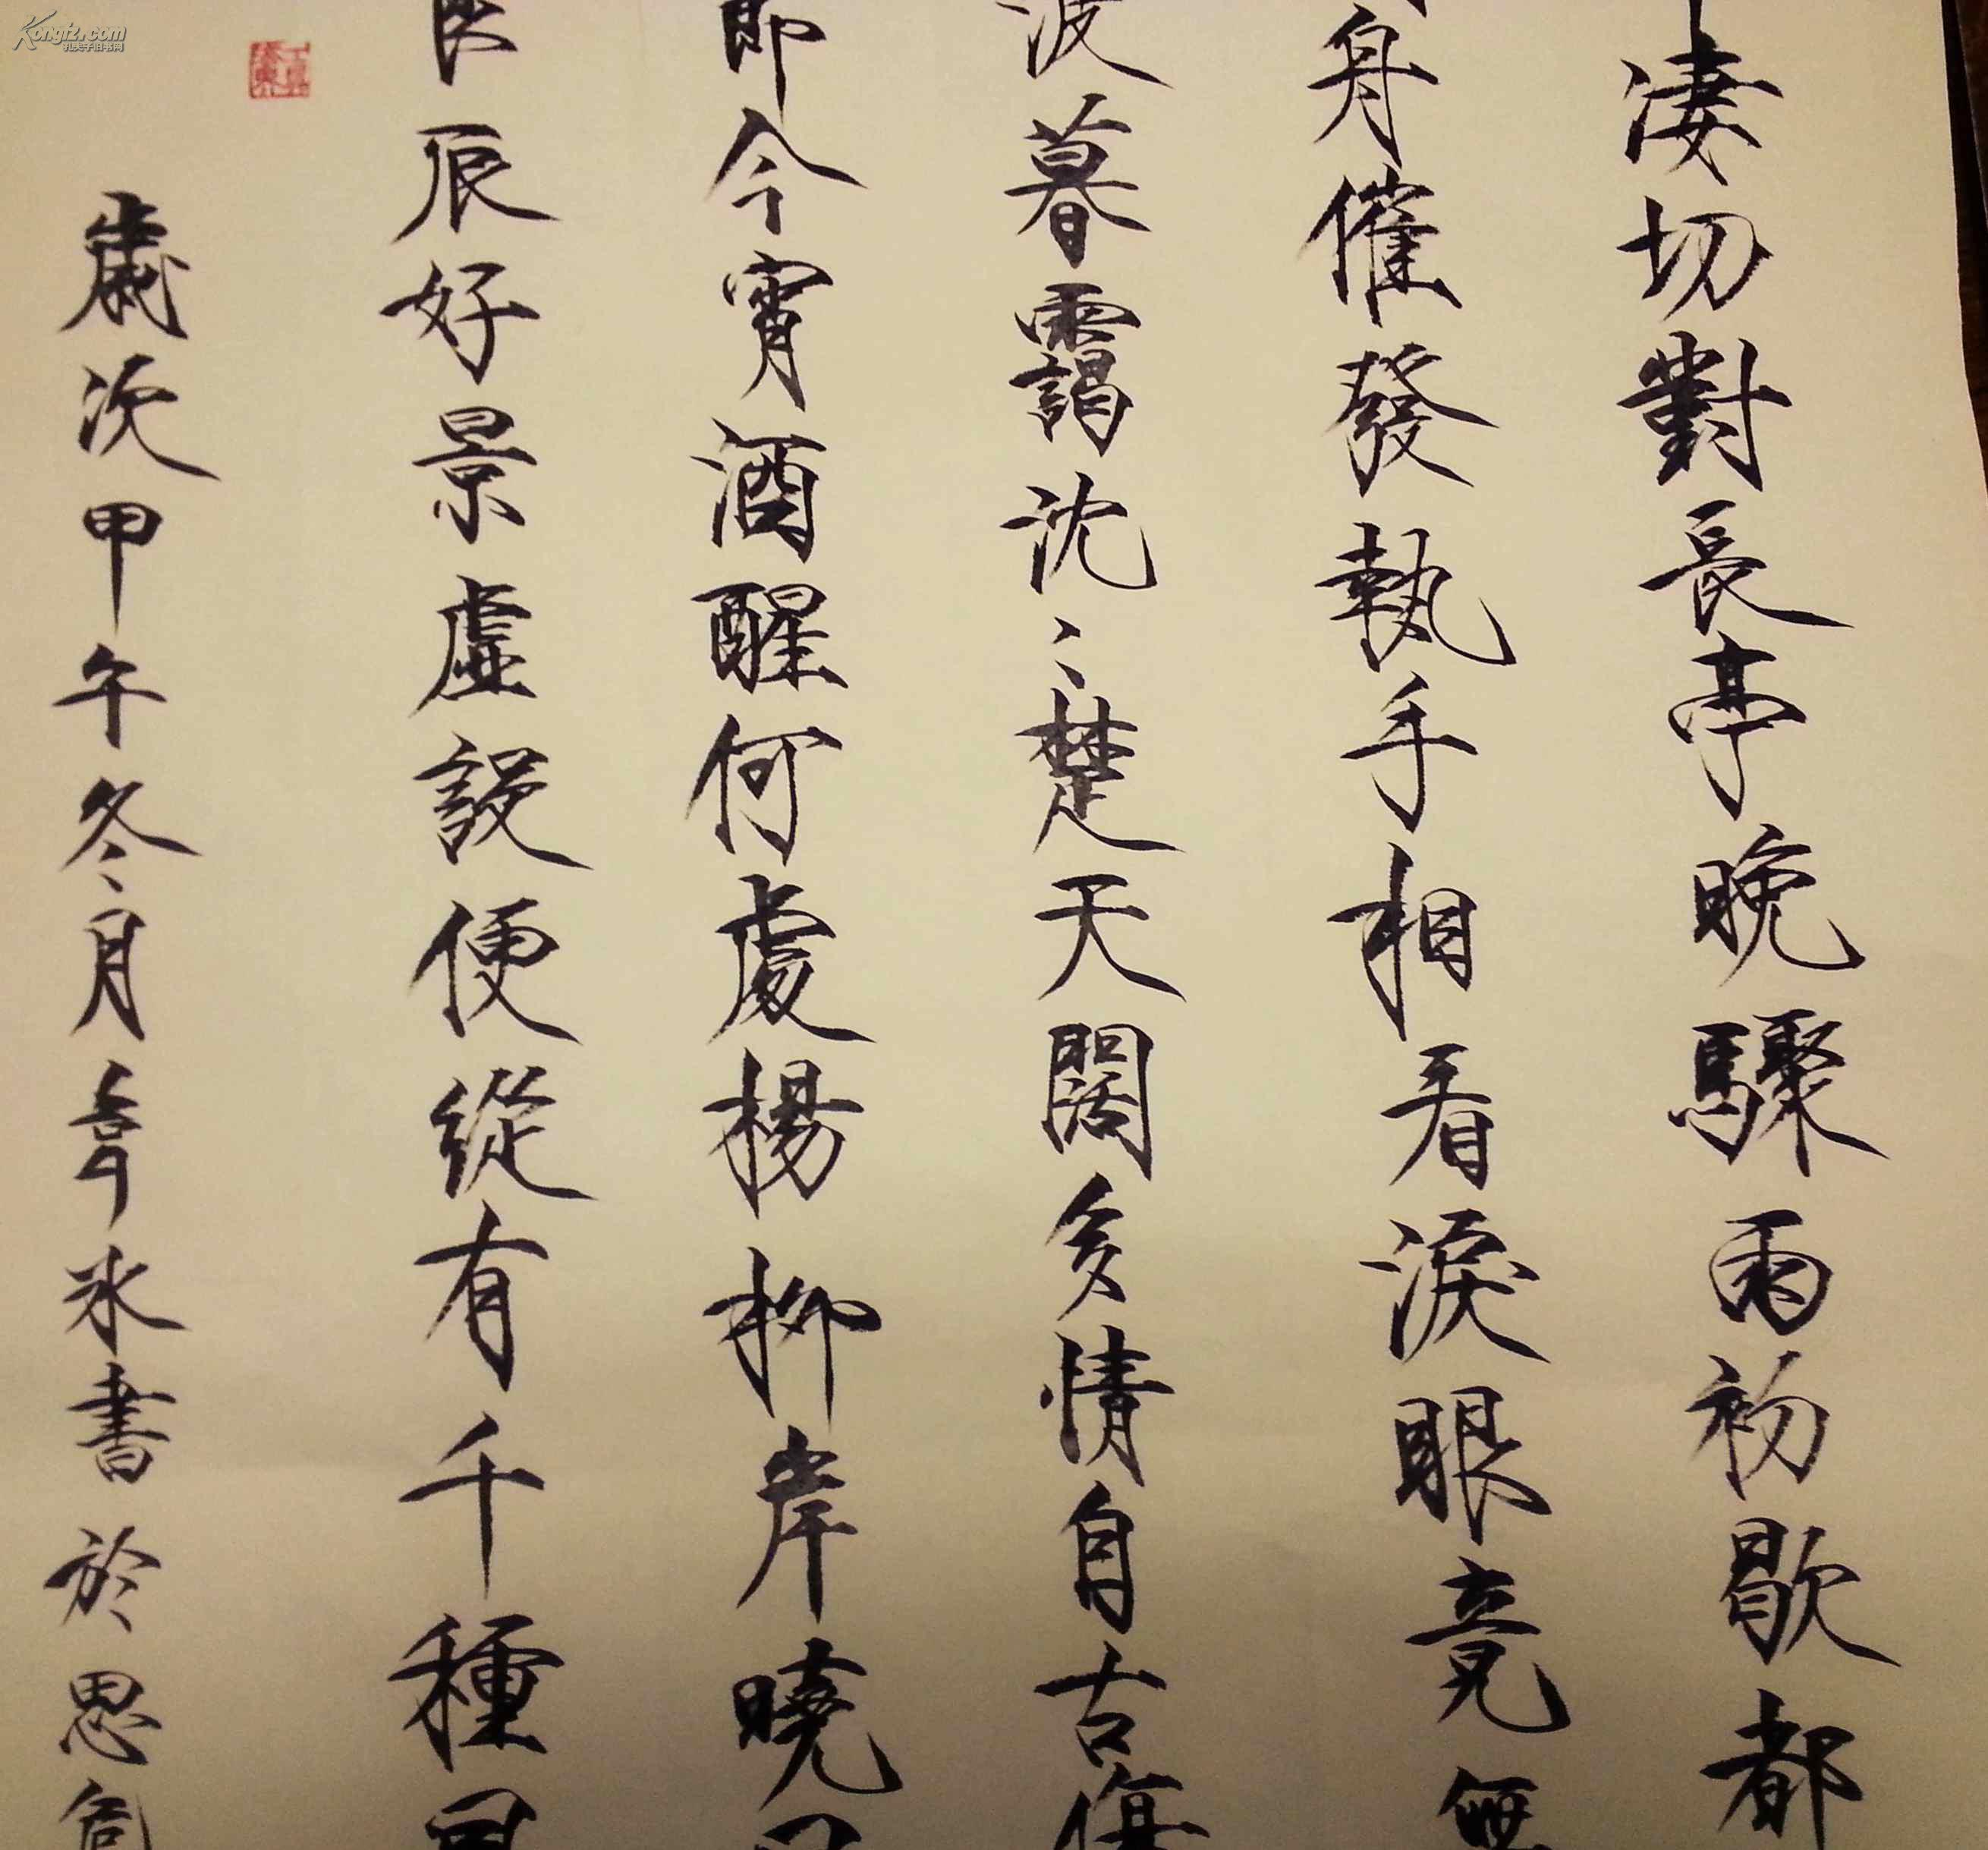 凄切對長亭晚驟雨初歇都
舟催發執手相看淚眼竟無
波暮靄沈〻楚天闊多情自古傷
那今宵酒醒何處楊柳岸曉風
良辰好景虛設便縱有千種風
歲次甲午冬月韋冰書於思
Kongfz.com
孔夫子旧书网